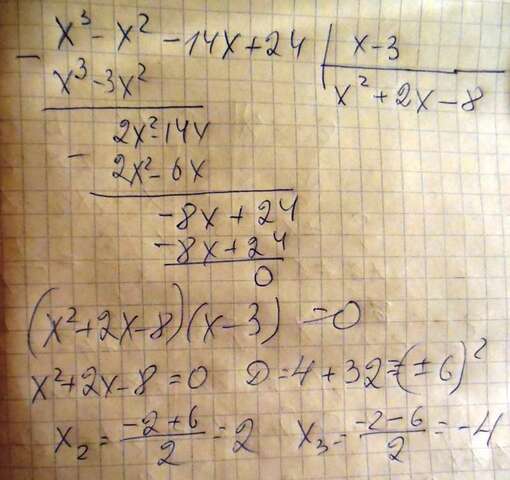 x³ - x² - 14x + 24 | x - 3
- x³ - 3x² | x² + 2x - 8
2x² - 14x
- 2x² - 6x
-8x + 24
-8x + 24
0
(x² + 2x - 8)(x - 3) = 0
x² + 2x - 8 = 0 D = 4 + 32 = (±6)²
x₂ = (-2 + 6)/2 = 2 x₃ = (-2 - 6)/2 = -4